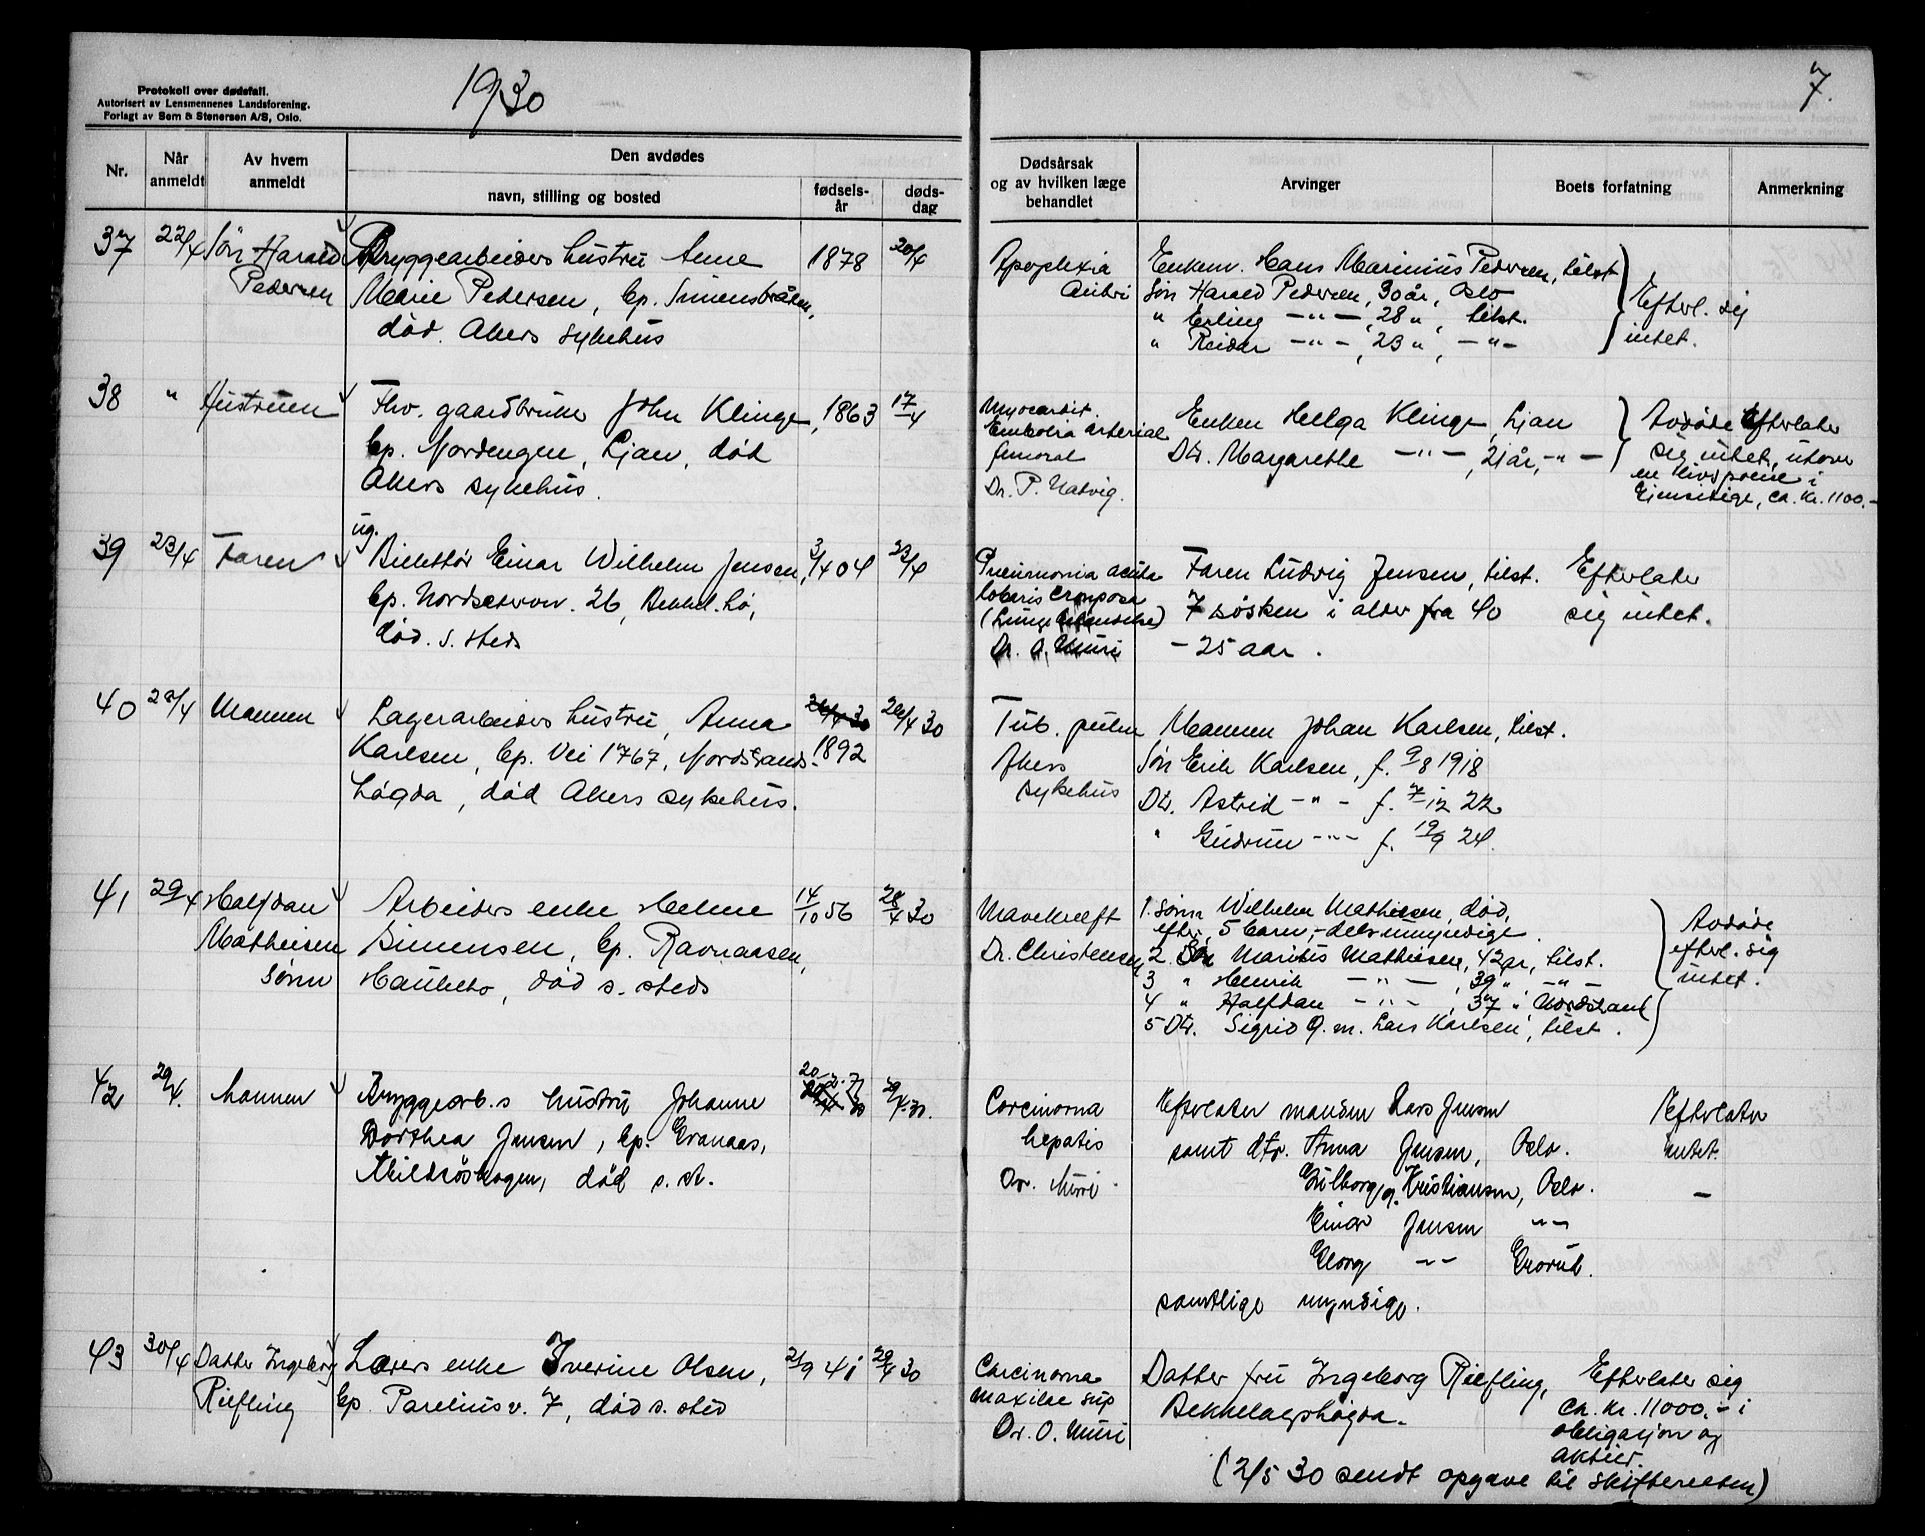 Protokoll over dødsfall.
Autorisert av Lensmennenes Landsforening.
Forlagt av Sem & Stenersen A/S, Oslo.
1930
7.
Nr.
Når anmeldt
Av hvem anmeldt
Den avdødes
navn, stilling og bosted
fødselsår
dødsdag
Dødsårsak og av hvilken læge behandlet
Arvinger
Boets forfatning
Anmerkning
37 22/4 Søn Harald Bryggearbeiders hustru Anne 1878 20/4
Pedersen Marie Pedersen, bp. Simensbråten,
død. Akers sykehus
Apoplexia Enkem. Hans Marinius Pedersen, tilst
Søn Harald Pedersen, 30 år, Oslo
" Erling -"-, 28 ", tilst.
" Reidar -"-, 23 ", -"-
Efterl. sig
intet.
38 " Hustruen Fhv. gaardbruker John Klinge, 1863 17/4
bp. Nordengen, Ljan, død
Akers sykehus.
Myocardit.
Embolia arterial
femoral
Dr. P. Natvig.
Enken Helga Klinge, Ljan
Dtr. Margarethe -"-, 21 år, -"-
Avdøde Efterlater
sig intet, utover
en livspolise i
Gjensidige, ca. kr. 1100.-
39 23/4 Faren ug.
Einar Wilhelm Jensen, 3/4 04 23/4
bp. Nordseterv. 26, Bekkel.hø,
død. s. steds
Pneumonia acuta
lobaris crouposa
(Lungebetændelse)
Dr. O. Muri
Faren Ludvig Jensen, tilst.
7 søsken i alder fra 40
- 25 aar.
Efterlater
sig intet.
40 28/4 Mannen Lagerarbeiders hustru, Anna 26/4 30 26/4 30
Karlsen, bp. Vei 1767, Nordstrands- 1892
høgda, død Akers sykehus.
Tub. pulm
Akers
sykehus
Mannen Johan Karlsen, tilst.
Søn Erik Karlsen, f. 9/8 1918
Dtr. Astrid -"- f. 7/12 22
" Gudrun -"- f. 19/9 24.
41 29/4 Halfdan Arbeiders enke Helene 14/10 56 28/4 30
Mathisen Simensen, bp. Ravnaasen,
sønn Hauketo, død s. steds
Mavekreft
Dr. Christensen
1. Sønn Wilhelm Mathisen, død,
efter. 5 barn, - dels umyndige.
2. Søn Maritus Mathisen, 42 år, tilst.
3 " Henrik -"-, 39 ", -"-
4 " Halfdan -"-, 37 " Nordstrand
5 Dtr. Sigrid g. m. Lars Karlsen, tilst.
Avdøde
efterl. sig
intet.
42 29/4. Mannen Bryggearb.s hustru Johanne 29/4. 30.
Dorthea Jensen, bp. Granaas,
død s. st.
Carcinoma
hepatis
Dr. Muri
Efterlater mannen Lars Jensen
samt dtr. Anna Jensen, Oslo.
Gulborg g. Kristiansen, Oslo.
Einar Jensen -"-
Georg -"- Grorud.
samtlige myndige.
Efterlater
intet.
-
43 30/4 Datter Ingeborg Lærers enke Iverine Olsen, 21/9 41 29/4 30
Riefling bp. Pareliusv. 7, død s. sted
Carcinoma
maxilae sup
Dr. O. Muri
Datter fru Ingeborg Riefling,
Bekkelagshøgda.
Efterlater sig
ca. kr. 11000.- i
obligasjon og
aktier.
(2/5 30 sendt opgave til skifteretten)